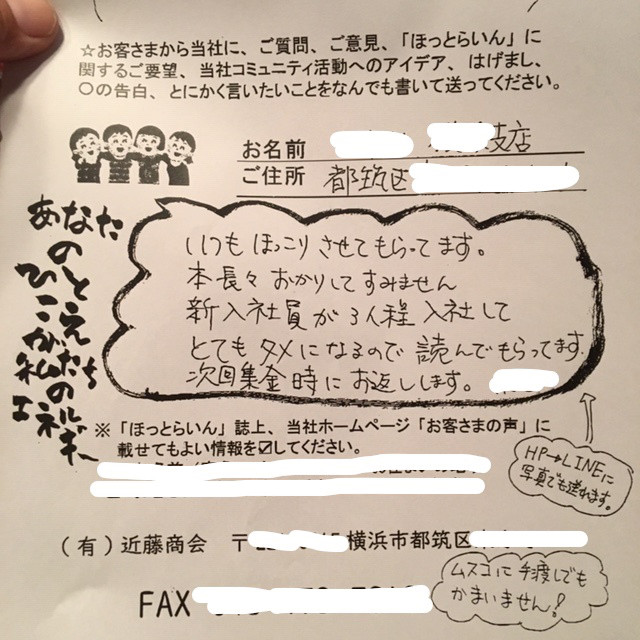 ☆お客さまから当社に、ご質問、ご意見、「ほっとらいん」に
関するご要望、当社コミュニティ活動へのアイデア、はげまし、
〇の告白、とにかく言いたいことをなんでも書いて送ってください。
お名前 支店
ご住所 都筑区
あなた
のひとこえが
私たちの
エネルギー
いつもほっこりさせてもらってます。
本長々おかりしてすみません
新入社員が3人程入社して
とてもタメになるので読んでもらってます
次回集金時にお返しします。
※「ほっとらいん」誌上、当社ホームページ「お客さまの声」に
載せてもよい情報を☑してください。
HP→LINEに
写真でも送れます。
(有)近藤商会 〒 横浜市都筑区
ムスコに手渡しでも
かまいません!
FAX